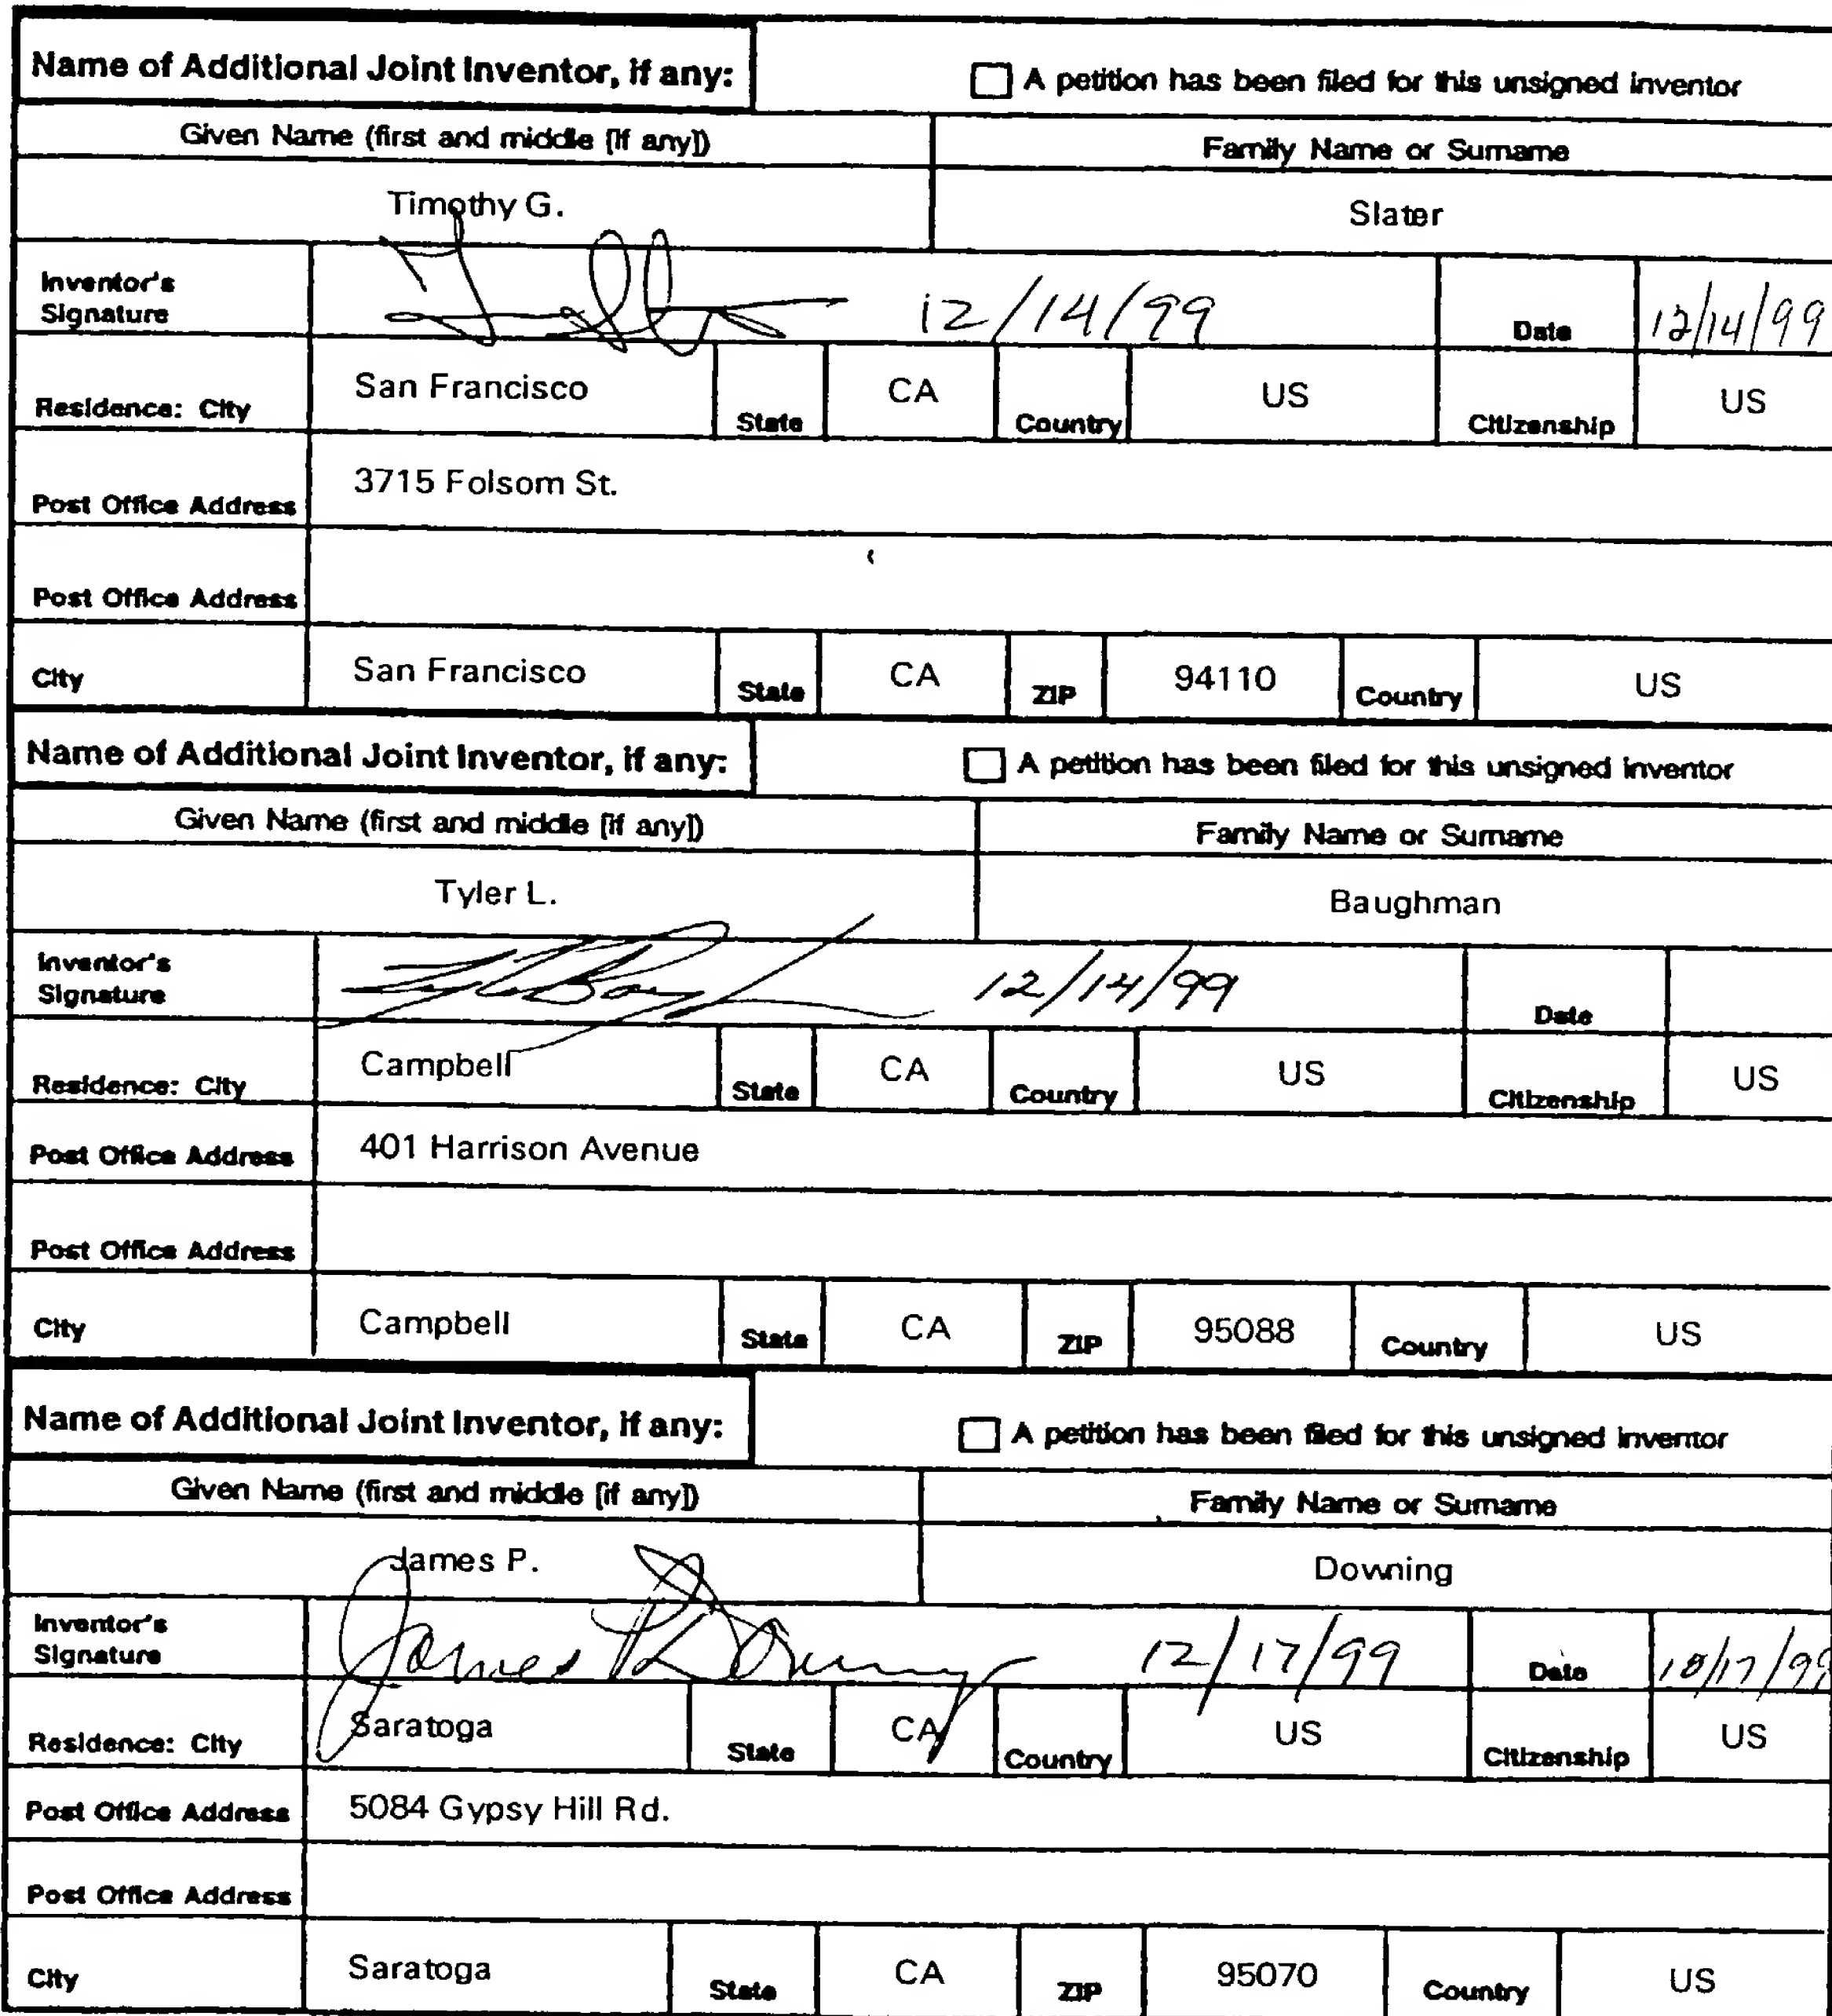 Name of Additional Joint Inventor, if any: ☐ A petition has been filed for this unsigned inventor
Given Name (first and middle [if any]) Family Name or Surname
Timothy G. Slater
Inventor's Signature 12/14/99 Date 12/14/99
Residence: City San Francisco State CA Country US Citizenship US
Post Office Address 3715 Folsom St.
Post Office Address
City San Francisco State CA ZIP 94110 Country US
Name of Additional Joint Inventor, if any: ☐ A petition has been filed for this unsigned inventor
Given Name (first and middle [if any]) Family Name or Surname
Tyler L. Baughman
Inventor's Signature 12/14/99 Date
Residence: City Campbell State CA Country US Citizenship US
Post Office Address 401 Harrison Avenue
Post Office Address
City Campbell State CA ZIP 95088 Country US
Name of Additional Joint Inventor, if any: ☐ A petition has been filed for this unsigned inventor
Given Name (first and middle [if any]) Family Name or Surname
James P. Downing
Inventor's Signature James P Downing 12/17/99 Date
Residence: City Saratoga State CA Country US Citizenship US
Post Office Address 5084 Gypsy Hill Rd.
Post Office Address
City Saratoga State CA ZIP 95070 Country US